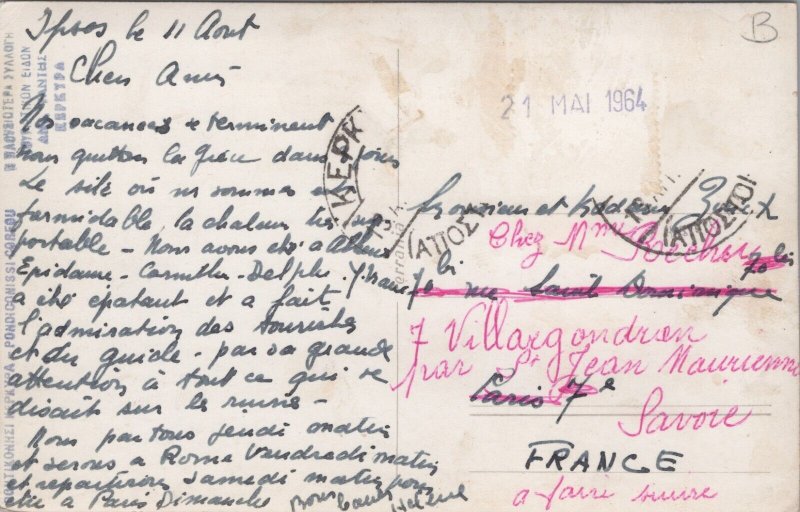 Ipsos le 11 Aout
Chers Amis
Nos vacances se terminent
nous quittons la Grèce dans jours
Le site où ns sommes est
formidable, la chaleur très sup
portable - Nous avons été à Athènes
Epidaure - Corinthe - Delphes
a été épatant et a fait
l'admiration des touristes
et du guide - par sa grande
attention à tout ce qui se
disait sur les ruines -
Nous partons jeudi matin
et serons à Rome Vendredi matin
et repartirons samedi matin pour
être à Paris Dimanche
Hélène
B
21 MAI 1964
ΚΕΡΚ
ΚΕΡΚΥΡΑ
Monsieur et Madame
Chez Mme
70 bis
rue Saint Dominique
7 Villargondran
par St Jean Maurienne
Paris 7e
Savoie
FRANCE
a faire suivre